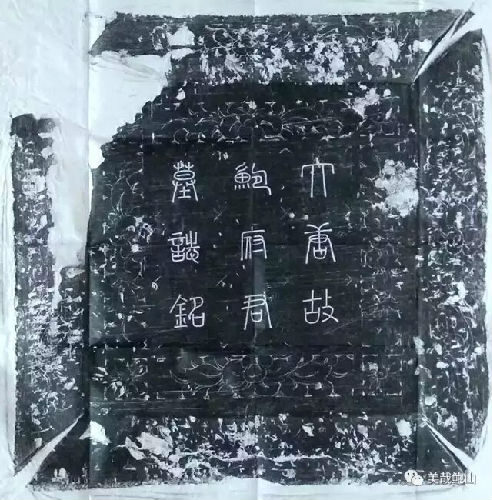 大唐故
鮑府君
墓誌銘
美哉鲍山